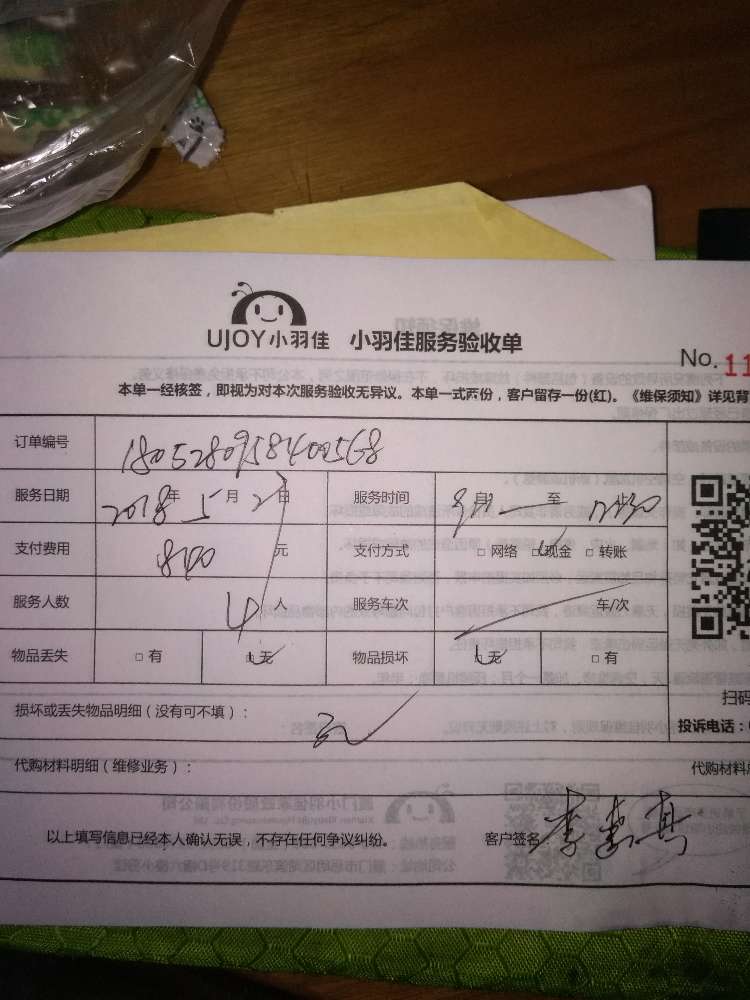 UJOY小羽佳 小羽佳服务验收单
No. 11
本单一经核签，即视为对本次服务验收无异议。本单一式两份，客户留存一份(红)。《维保须知》详见背
订单编号
服务日期 2018年 5月 2 日 服务时间 至
支付费用 840 元 支付方式 □ 网络 □ 现金 □ 转账
服务人数 4 人 服务车次 车/次
物品丢失 □ 有 □ 无 物品损坏 □ 无 □ 有
扫码
损坏或丢失物品明细（没有可不填）：
投诉电话：
代购材料明细（维修业务）： 代购材料
以上填写信息已经本人确认无误，不存在任何争议纠纷。 客户签名 李